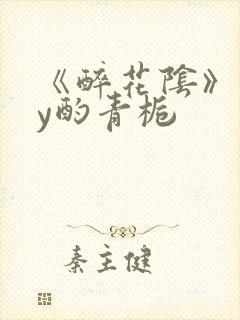 《醉花陰》
y酌青梔
秦主健